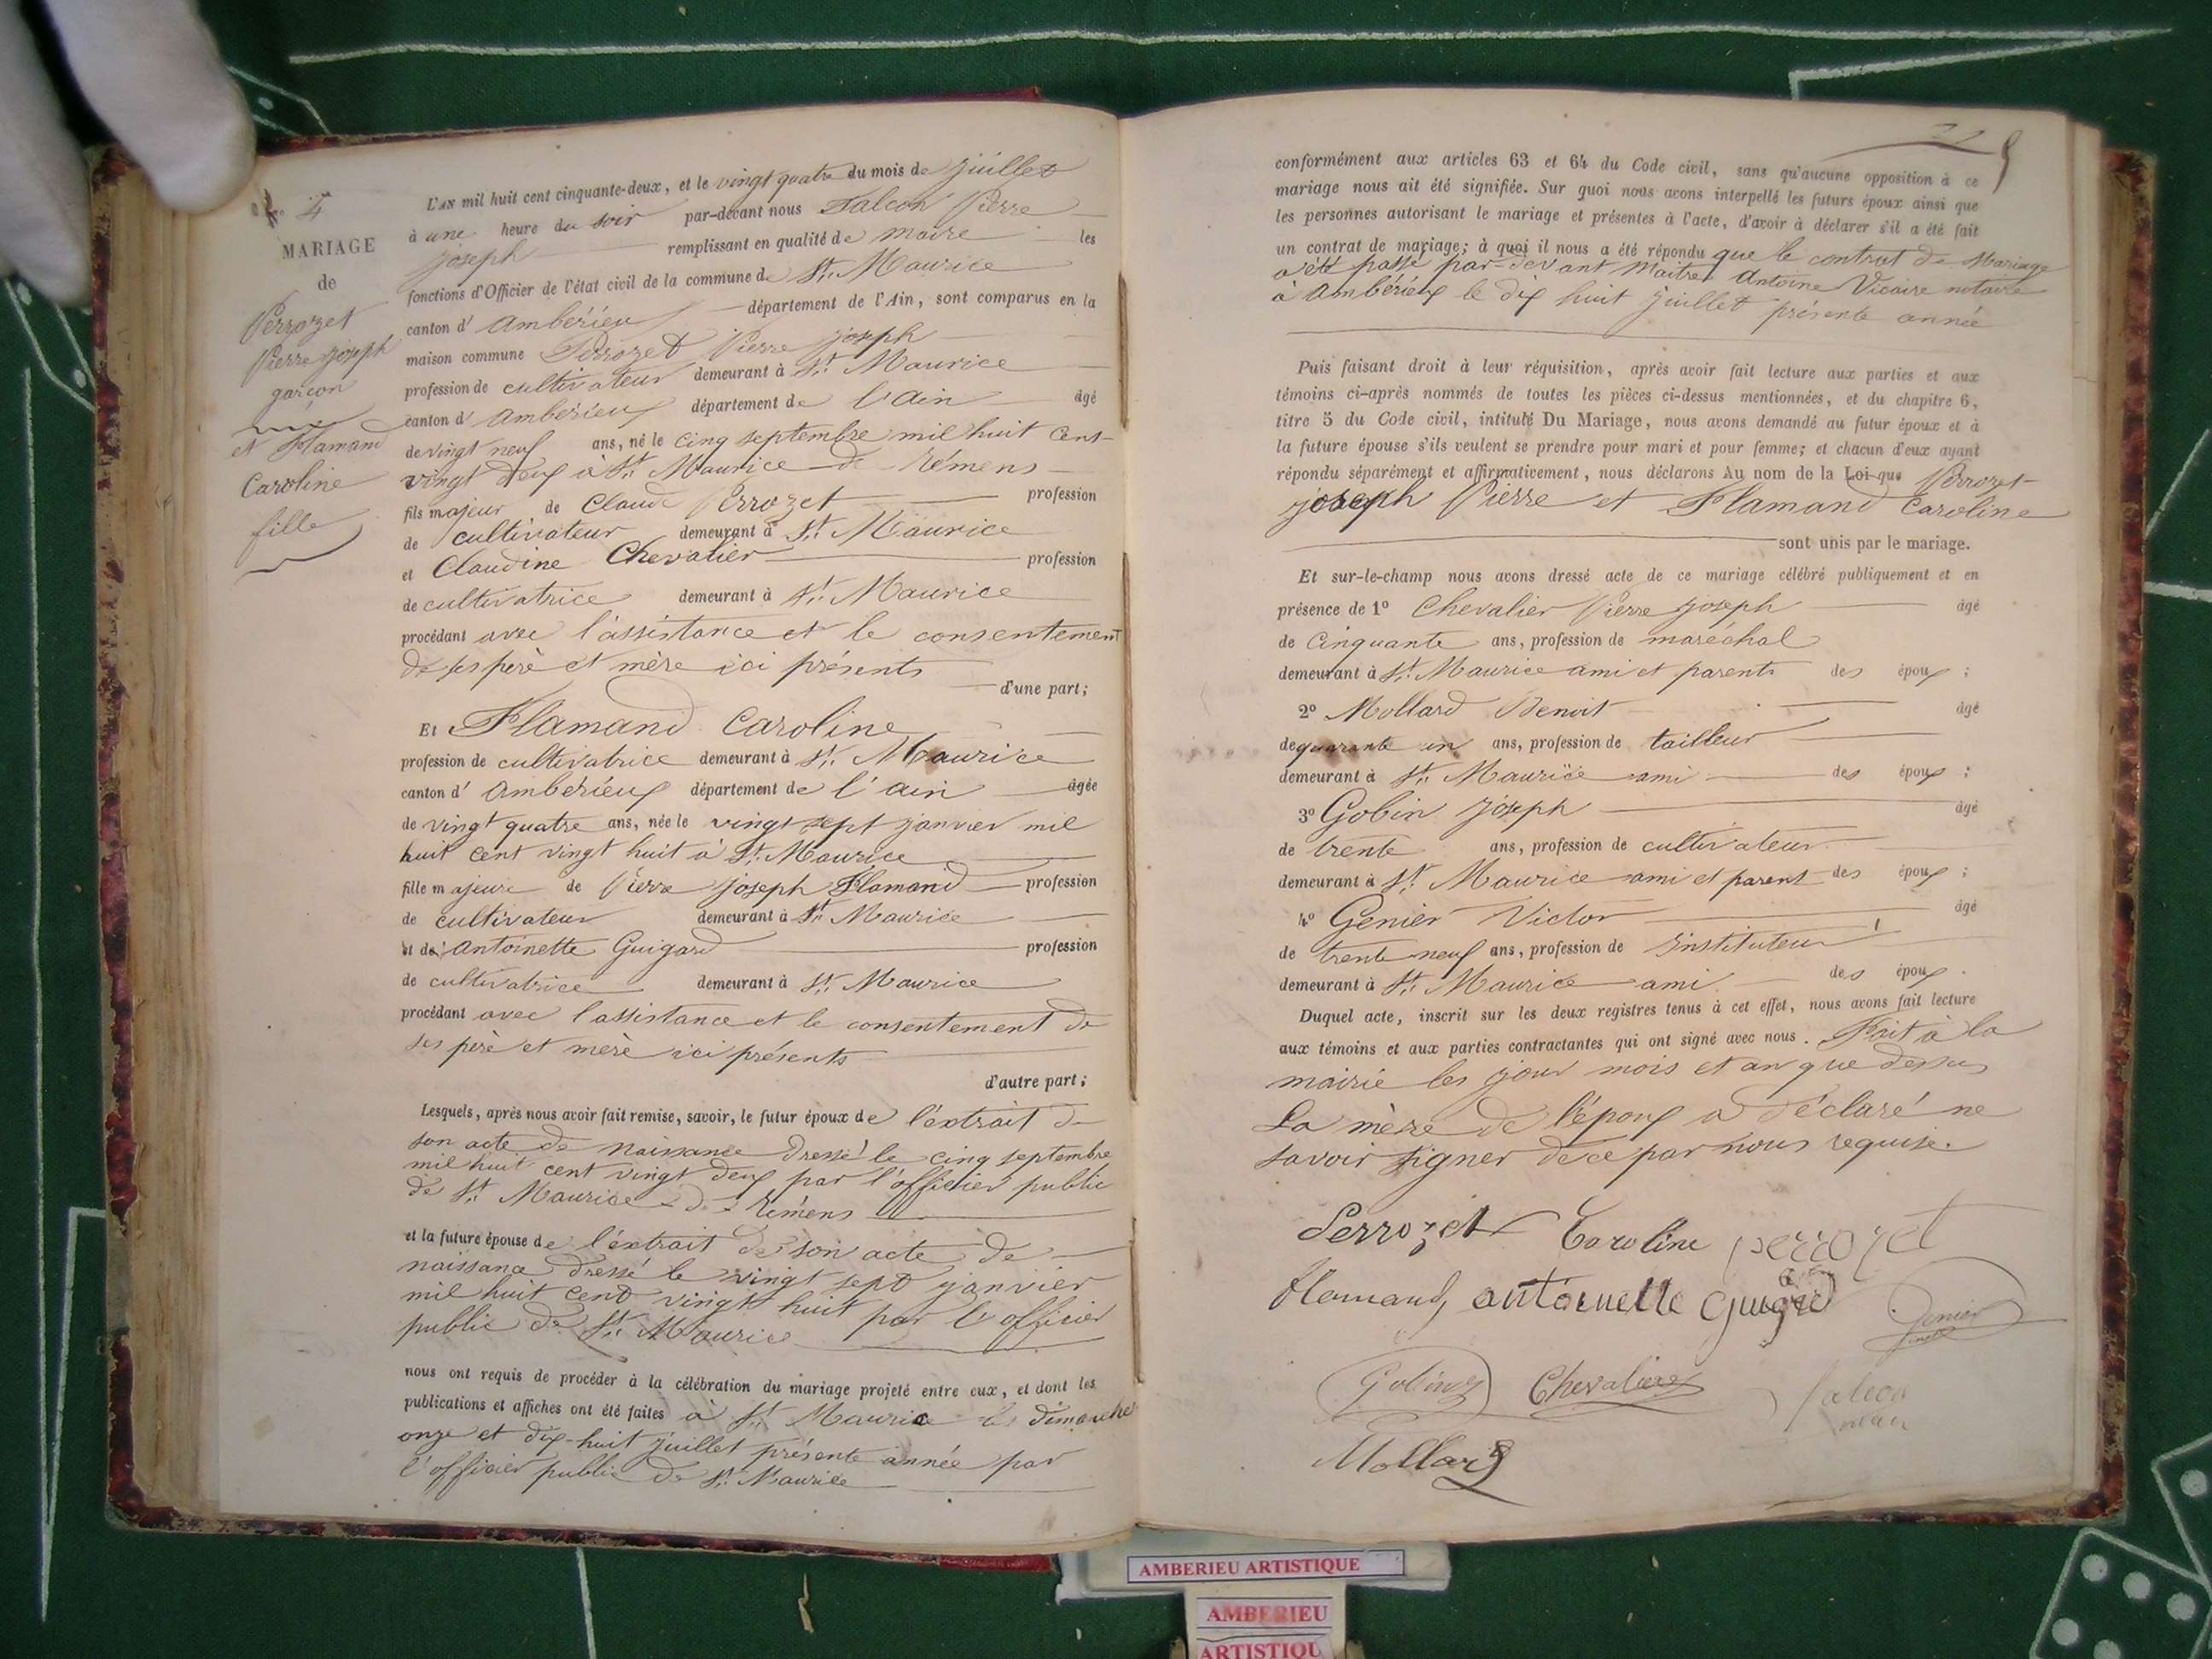 N° 4
MARIAGE
de
Perrozet
Pierre joseph
garçon
et Flamand
Caroline
fille
L'AN mil huit cent cinquante-deux, et le vingt quatre du mois de juillet
à une heure du soir par-devant nous Falcon Pierre
joseph remplissant en qualité de maire les
fonctions d'Officier de l'état civil de la commune de St. Maurice
canton d' Ambérieux département de l'Ain, sont comparus en la
maison commune Perrozet Pierre joseph
profession de cultivateur demeurant à St. Maurice
canton d' Ambérieux département de l'Ain âgé
de vingt neuf ans, né le cinq septembre mil huit cent
vingt deux à St. Maurice de Rémens
fils majeur de Claude Perrozet profession
de cultivateur demeurant à St. Maurice
et Claudine Chevalier profession
de cultivatrice demeurant à St. Maurice
procédant avec l'assistance et le consentement
de ses père et mère ici présents
d'une part;
Et Flamand Caroline
profession de cultivatrice demeurant à St. Maurice
canton d' Ambérieux département de l'ain âgée
de vingt quatre ans, née le vingt sept janvier mil
huit cent vingt huit à St. Maurice
fille majeure de Pierre joseph Flamand profession
de cultivateur demeurant à St. Maurice
et de Antoinette Guigard profession
de cultivatrice demeurant à St. Maurice
procédant avec l'assistance et le consentement de
ses père et mère ici présents
d'autre part;
Lesquels, après nous avoir fait remise, savoir, le futur époux de l'extrait de
son acte de naissance dressé le cinq septembre
mil huit cent vingt deux par l'officier public
de St. Maurice de Rémens
et la future épouse de l'extrait de son acte de
naissance dressé le vingt sept janvier
mil huit cent vingt huit par l'officier
public de St. Maurice
nous ont requis de procéder à la célébration du mariage projeté entre eux, et dont les
publications et affiches ont été faites à St. Maurice les dimanche
onze et dix-huit juillet présente année par
l'officier public de St. Maurice
conformément aux articles 63 et 64 du Code civil, sans qu'aucune opposition à ce
mariage nous ait été signifiée. Sur quoi nous avons interpellé les futurs époux ainsi que
les personnes autorisant le mariage et présentes à l'acte, d'avoir à déclarer s'il a été fait
un contrat de mariage; à quoi il nous a été répondu que le contrat de Mariage
a été passé par-devant Maître Antoine Vicaire notaire
à Ambérieux le dix huit juillet présente année
Puis faisant droit à leur réquisition, après avoir fait lecture aux parties et aux
témoins ci-après nommés de toutes les pièces ci-dessus mentionnées, et du chapitre 6,
titre 5 du Code civil, intitulé Du Mariage, nous avons demandé au futur époux et à
la future épouse s'ils veulent se prendre pour mari et pour femme; et chacun d'eux ayant
répondu séparément et affirmativement, nous déclarons Au nom de la Loi que Perrozet
joseph Pierre et Flamand Caroline
sont unis par le mariage.
Et sur-le-champ nous avons dressé acte de ce mariage célébré publiquement et en
présence de 1° Chevalier Pierre joseph âgé
de Cinquante ans, profession de maréchal
demeurant à St. Maurice ami et parent des époux ;
2° Mollard Benoit âgé
de quarante un ans, profession de tailleur
demeurant à St. Maurice ami des époux ;
3° Gobin joseph âgé
de trente ans, profession de cultivateur
demeurant à St. Maurice ami et parent des époux ;
4° Genier Victor âgé
de trente neuf ans, profession de instituteur
demeurant à St. Maurice ami des époux.
Duquel acte, inscrit sur les deux registres tenus à cet effet, nous avons fait lecture
aux témoins et aux parties contractantes qui ont signé avec nous. Fait à la
mairie les jour mois et an que dessus
La mère de l'époux a déclaré ne
savoir signer de ce par nous requise.
Perrozet Caroline perrozet
flamand antoinette Guigard Genier
Gobin Chevalier falcon
maire
Mollard
AMBERIEU ARTISTIQUE
AMBERIEU
ARTISTIQU